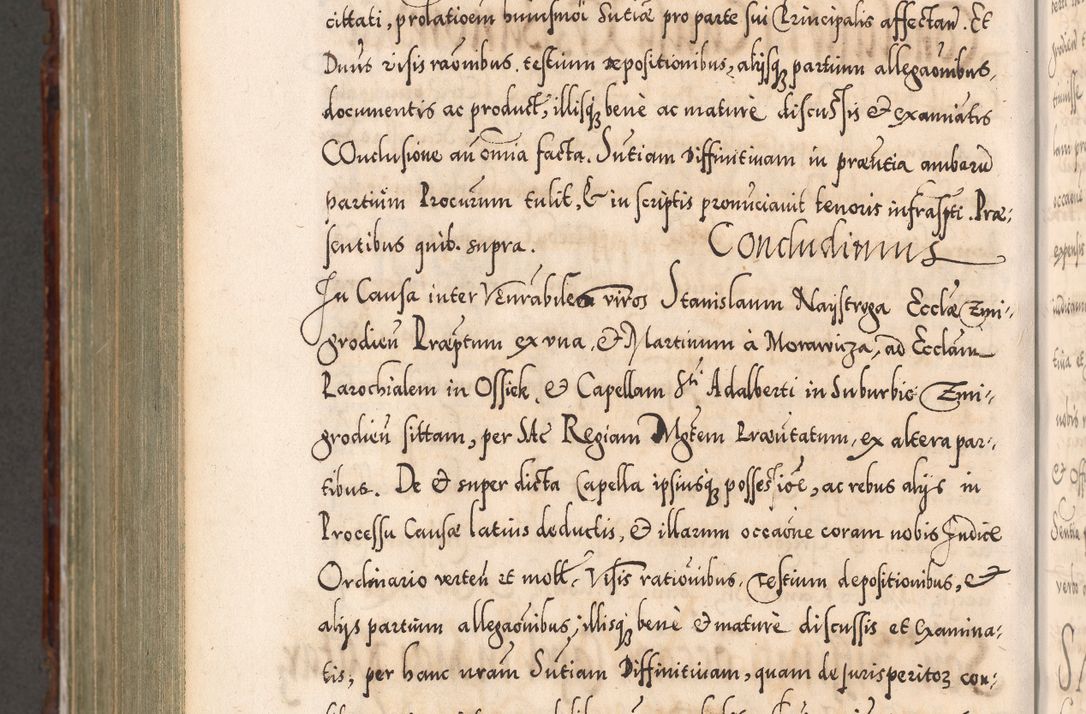 cittati, prolationem huiusmoi Sntiæ pro parte sui Principalis affectan. Et
Dnus visis raonibus, testium depositionibus, alijsq partium allegaonibus,
documentis ac product, illisq bene ac mature discussis & examinatis
COnclusione an omnia facta. Sntiam Diffinitiuam in præntia ambaru
partium Procurum tulit, & in scriptis pronunciauit tenoris infrascpti. Præ:
sentibus quib. supra. Concludimus
In Causa inter Venrabiles viros Stanislaum Naystroga Ecclæ Zmi-
grodien Præptum ex vna, & Martinum à Morawicza, ad Ecclam
Parochialem in Ossiek, & Capellam Sti Adalberti in Suburbio Zmi-
grodien sittam, per SAc Regiam Mgtem Præntatum, ex altera par-
tibus. De & super dicta Capella ipsiusq possessioe, ac rebus alijs in
Processu Causæ latius deductis, & illarum occaone coram nobis Judice
Ordinario verten et mot, Visis rationibus, Testium depositionibus, &
alijs partium allegaonibus, illisq bene & mature discussis et Examina-
tis, per hanc nram Sntiam Diffinitiuam, quam de Jurisperitoz con-